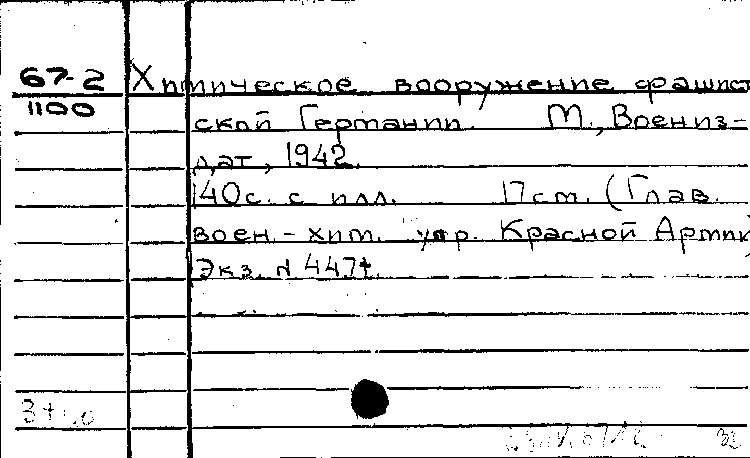 67-2
1100
Химическое вооружение фашист
ской Германии. М., Воениз-
дат, 1942.
140с. с илл. 17см. (Глав.
воен.-хим. упр. Красной Армии)
Экз. N 447+.